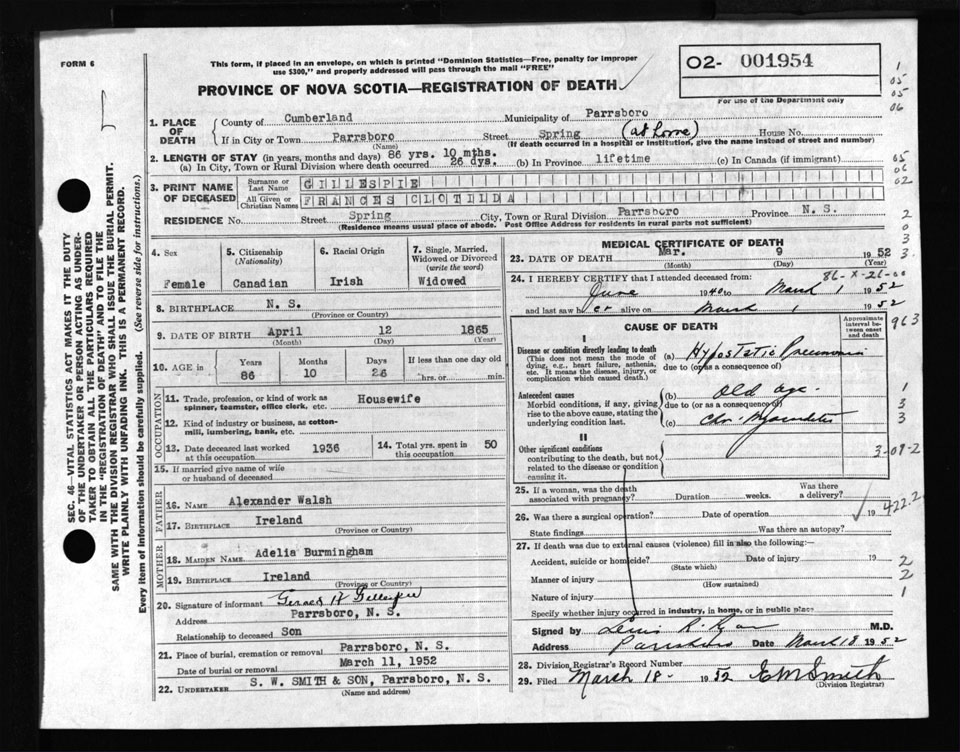 FORM 6
This form, if placed in an envelope, on which is printed "Dominion Statistics—Free, penalty for improper
use $300," and properly addressed will pass through the mail "FREE"
02- 001954
For use of the Department only
PROVINCE OF NOVA SCOTIA—REGISTRATION OF DEATH
1. PLACE OF DEATH
County of Cumberland Municipality of Parrsboro
If in City or Town Parrsboro Street Spring (at home) House No.
(Name) (If death occurred in a hospital or institution, give the name instead of street and number)
2. LENGTH OF STAY (in years, months and days) 86 yrs. 10 mths.
(a) In City, Town or Rural Division where death occurred 26 dys. (b) In Province lifetime (c) In Canada (if immigrant)
3. PRINT NAME OF DECEASED
Surname or Last Name GILLESPIE
All Given or Christian Names FRANCES CLOTILDA
RESIDENCE No. Street Spring City, Town or Rural Division Parrsboro Province N. S.
(Residence means usual place of abode. Post Office Address for residents in rural parts not sufficient)
4. Sex
Female
5. Citizenship (Nationality)
Canadian
6. Racial Origin
Irish
7. Single, Married, Widowed or Divorced (write the word)
Widowed
8. BIRTHPLACE N. S.
(Province or Country)
9. DATE OF BIRTH April 12 1865
(Month) (Day) (Year)
10. AGE in
Years Months Days If less than one day old
86 10 26 hrs. or min.
OCCUPATION
11. Trade, profession, or kind of work as Housewife
spinner, teamster, office clerk, etc.
12. Kind of industry or business, as cotton-
mill, lumbering, bank, etc.
13. Date deceased last worked at this occupation 1936
14. Total yrs. spent in this occupation 50
15. If married give name of wife
or husband of deceased
FATHER
16. NAME Alexander Walsh
17. BIRTHPLACE Ireland
(Province or Country)
MOTHER
18. MAIDEN NAME Adelia Burmingham
19. BIRTHPLACE Ireland
(Province or Country)
20. Signature of informant Gerald H Gillespie
Address Parrsboro, N. S.
Relationship to deceased Son
21. Place of burial, cremation or removal Parrsboro, N. S.
Date of burial or removal March 11, 1952
22. UNDERTAKER S. W. SMITH & SON, Parrsboro, N. S.
(Name and address)
MEDICAL CERTIFICATE OF DEATH
23. DATE OF DEATH Mar. 9 1952
(Month) (Day) (Year)
86-X-26-00
24. I HEREBY CERTIFY that I attended deceased from:
June 1940 to March 1 1952
and last saw her alive on March 1 1952
CAUSE OF DEATH
Approximate interval between onset and death
I
Disease or condition directly leading to death
(This does not mean the mode of
dying, e.g., heart failure, asthenia,
etc. It means the disease, injury, or
complication which caused death.)
(a) Hypostatic Pneumonia
due to (or as a consequence of)
Antecedent causes
Morbid conditions, if any, giving
rise to the above cause, stating the
underlying condition last.
(b) Old age.
due to (or as a consequence of)
(c) Chr. Myocarditis
II
Other significant conditions
contributing to the death, but not
related to the disease or condition
causing it.
25. If a woman, was the death associated with pregnancy? Duration weeks. Was there a delivery?
26. Was there a surgical operation? Date of operation 19
State findings Was there an autopsy?
27. If death was due to external causes (violence) fill in also the following:—
Accident, suicide or homicide? Date of injury 19
(State which)
Manner of injury
(How sustained)
Nature of injury
Specify whether injury occurred in industry, in home, or in public place
Signed by M.D.
Address Parrsboro Date March 18 1952
28. Division Registrar's Record Number
29. Filed March 18- 1952 E M Smith
(Division Registrar)
SEC. 46—VITAL STATISTICS ACT MAKES IT THE DUTY
OF THE UNDERTAKER OR PERSON ACTING AS UNDER-
TAKER TO OBTAIN ALL THE PARTICULARS REQUIRED
IN THE "REGISTRATION OF DEATH" AND TO FILE THE
SAME WITH THE DIVISION REGISTRAR WHO SHALL ISSUE THE BURIAL PERMIT.
WRITE PLAINLY WITH UNFADING INK. THIS IS A PERMANENT RECORD.
Every item of information should be carefully supplied. (See reverse side for instructions.)
1
05
05
06
05
06
02
2
0
3
3.
963
1
3
3
3-09-2
422.2
2
2
1